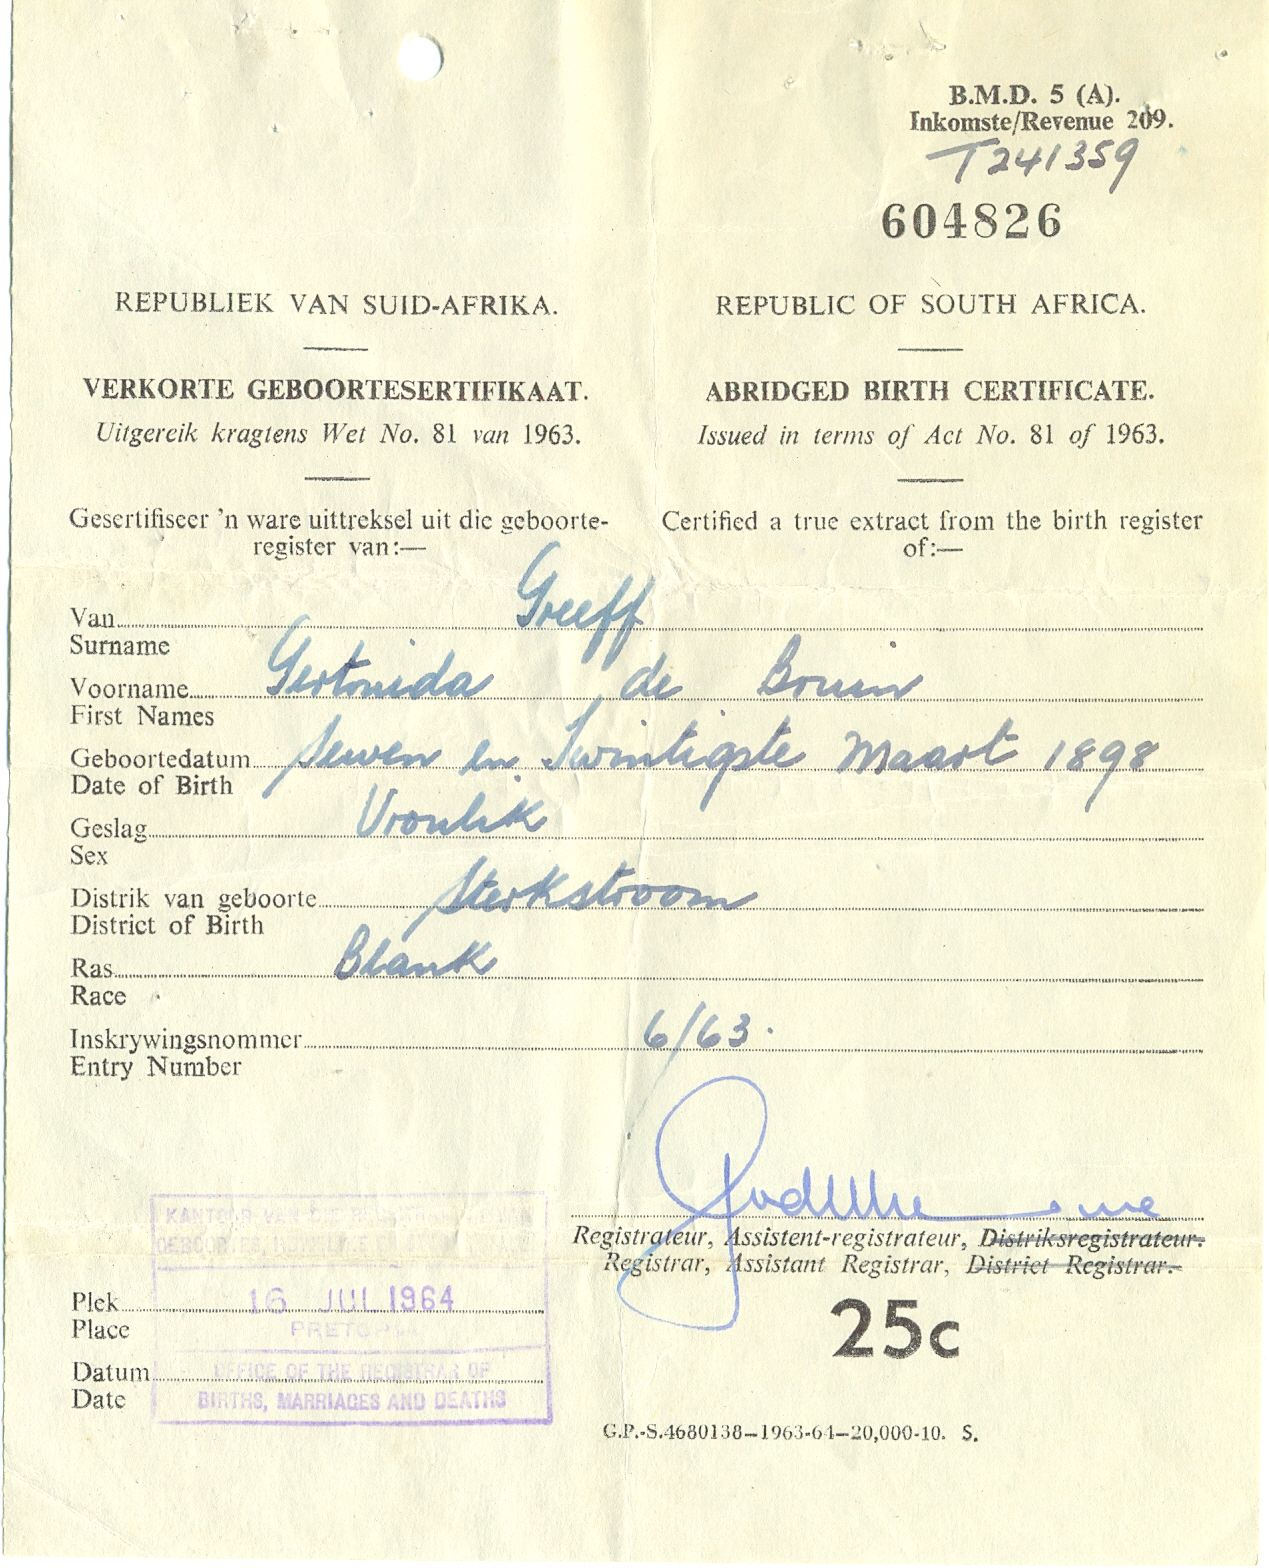 B.M.D. 5 (A).
Inkomste/Revenue 209.
T241359
604826
REPUBLIEK VAN SUID-AFRIKA.
VERKORTE GEBOORTESERTIFIKAAT.
Uitgereik kragtens Wet No. 81 van 1963.
Gesertifiseer 'n ware uittreksel uit die geboorte-
register van:—
REPUBLIC OF SOUTH AFRICA.
ABRIDGED BIRTH CERTIFICATE.
Issued in terms of Act No. 81 of 1963.
Certified a true extract from the birth register
of:—
Van Greeff
Surname
Voorname Gertruida de Bruin
First Names
Geboortedatum Sewen en Twintigste Maart 1898
Date of Birth
Geslag Vroulik
Sex
Distrik van geboorte Sterkstroom
District of Birth
Ras Blank
Race
Inskrywingsnommer 6/63.
Entry Number
Registrateur, Assistent-registrateur, Distriksregistrateur.
Registrar, Assistant Registrar, District Registrar.
KANTOOR VAN DIE
Plek 16 JUL 1964
Place PRETORIA
Datum OFFICE OF THE REGISTRAR OF
Date BIRTHS, MARRIAGES AND DEATHS
25c
G.P.-S.4680138—1963-64—20,000-10. S.